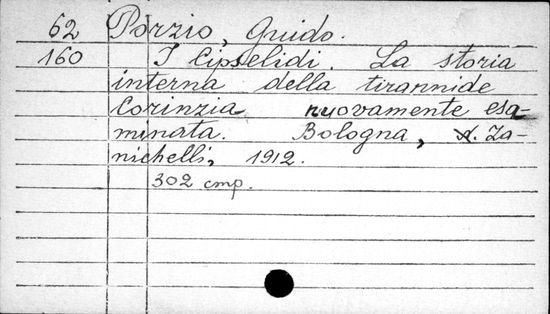 62 Porzio, Guido.
160 I Cipselidi. La storia
interna della tirannide
Corinzia nuovamente esa-
minata. Bologna, N. Za-
nichelli, 1912.
302 стр.